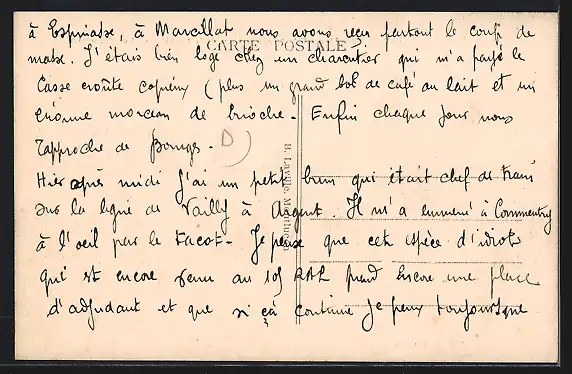 à Espinasse, à Marcillat nous avons reçu partout le coup de
CARTE POSTALE
main. J'étais bien logé chez un charcutier qui m'a payé le
Casse croûte copieux (plus un grand bol de café au lait et un
énorme morceau de brioche. Enfin chaque jour nous
rapproche de Bourges.
D
Hier après midi j'ai vu petit brun qui était chef de train
sur la ligne de Vailly à Argent. Il m'a emmené à Commentry
à l'oeil par le tacot. Je pense que cette espèce d'idiots
qui est encore venu au 105 RAL prend encore une place
d'adjudant et que si ça continue je peux toujours que